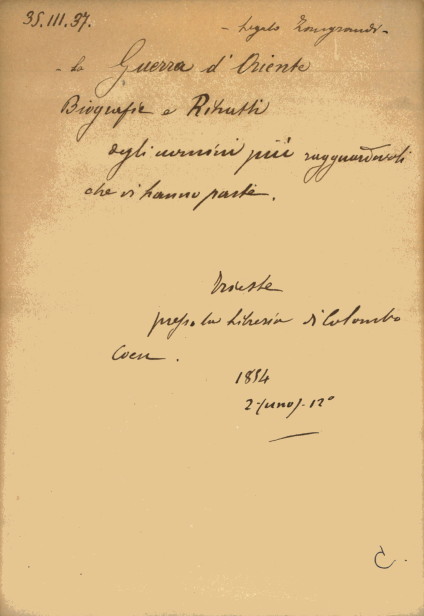 35.III.37.
- Legato Zongrandi -
- La Guerra d'Oriente
Biografie e Ritratti
degli uomini più ragguardevoli
che vi hanno parte.
Trieste
presso la Libreria di Colombo
Coen.
1854
2-(uno)-12°
C.